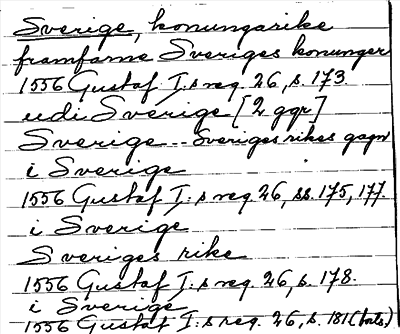 Sverige, konungarike
framfarne Sveriges konunger
1556 Gustaf I:s reg. 26, s. 173
udi Sverige [2 ggr]
Sverige -- Sveriges rikes gagn
i Sverige
1556 Gustaf I:s reg. 26, ss. 175, 177.
i Sverige
Sveriges rike
1556 Gustaf I:s reg. 26, s. 178.
i Sverige
1556 Gustaf I:s reg. 26, s. 181